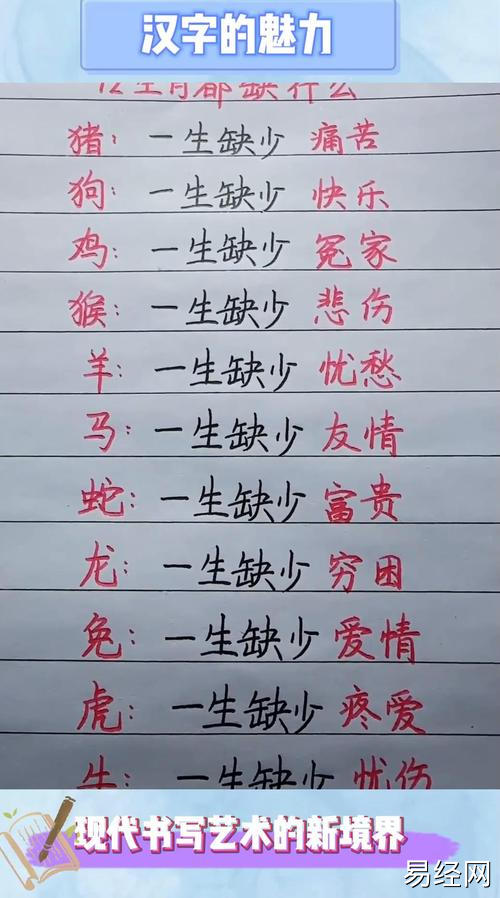 汉字的魅力
12生肖都缺什么
猪：一生缺少 痛苦
狗：一生缺少 快乐
鸡：一生缺少 冤家
猴：一生缺少 悲伤
羊：一生缺少 忧愁
马：一生缺少 友情
蛇：一生缺少 富贵
龙：一生缺少 穷困
兔：一生缺少 爱情
虎：一生缺少 疼爱
牛：一生缺少 忧伤
现代书写艺术的新境界
易经网